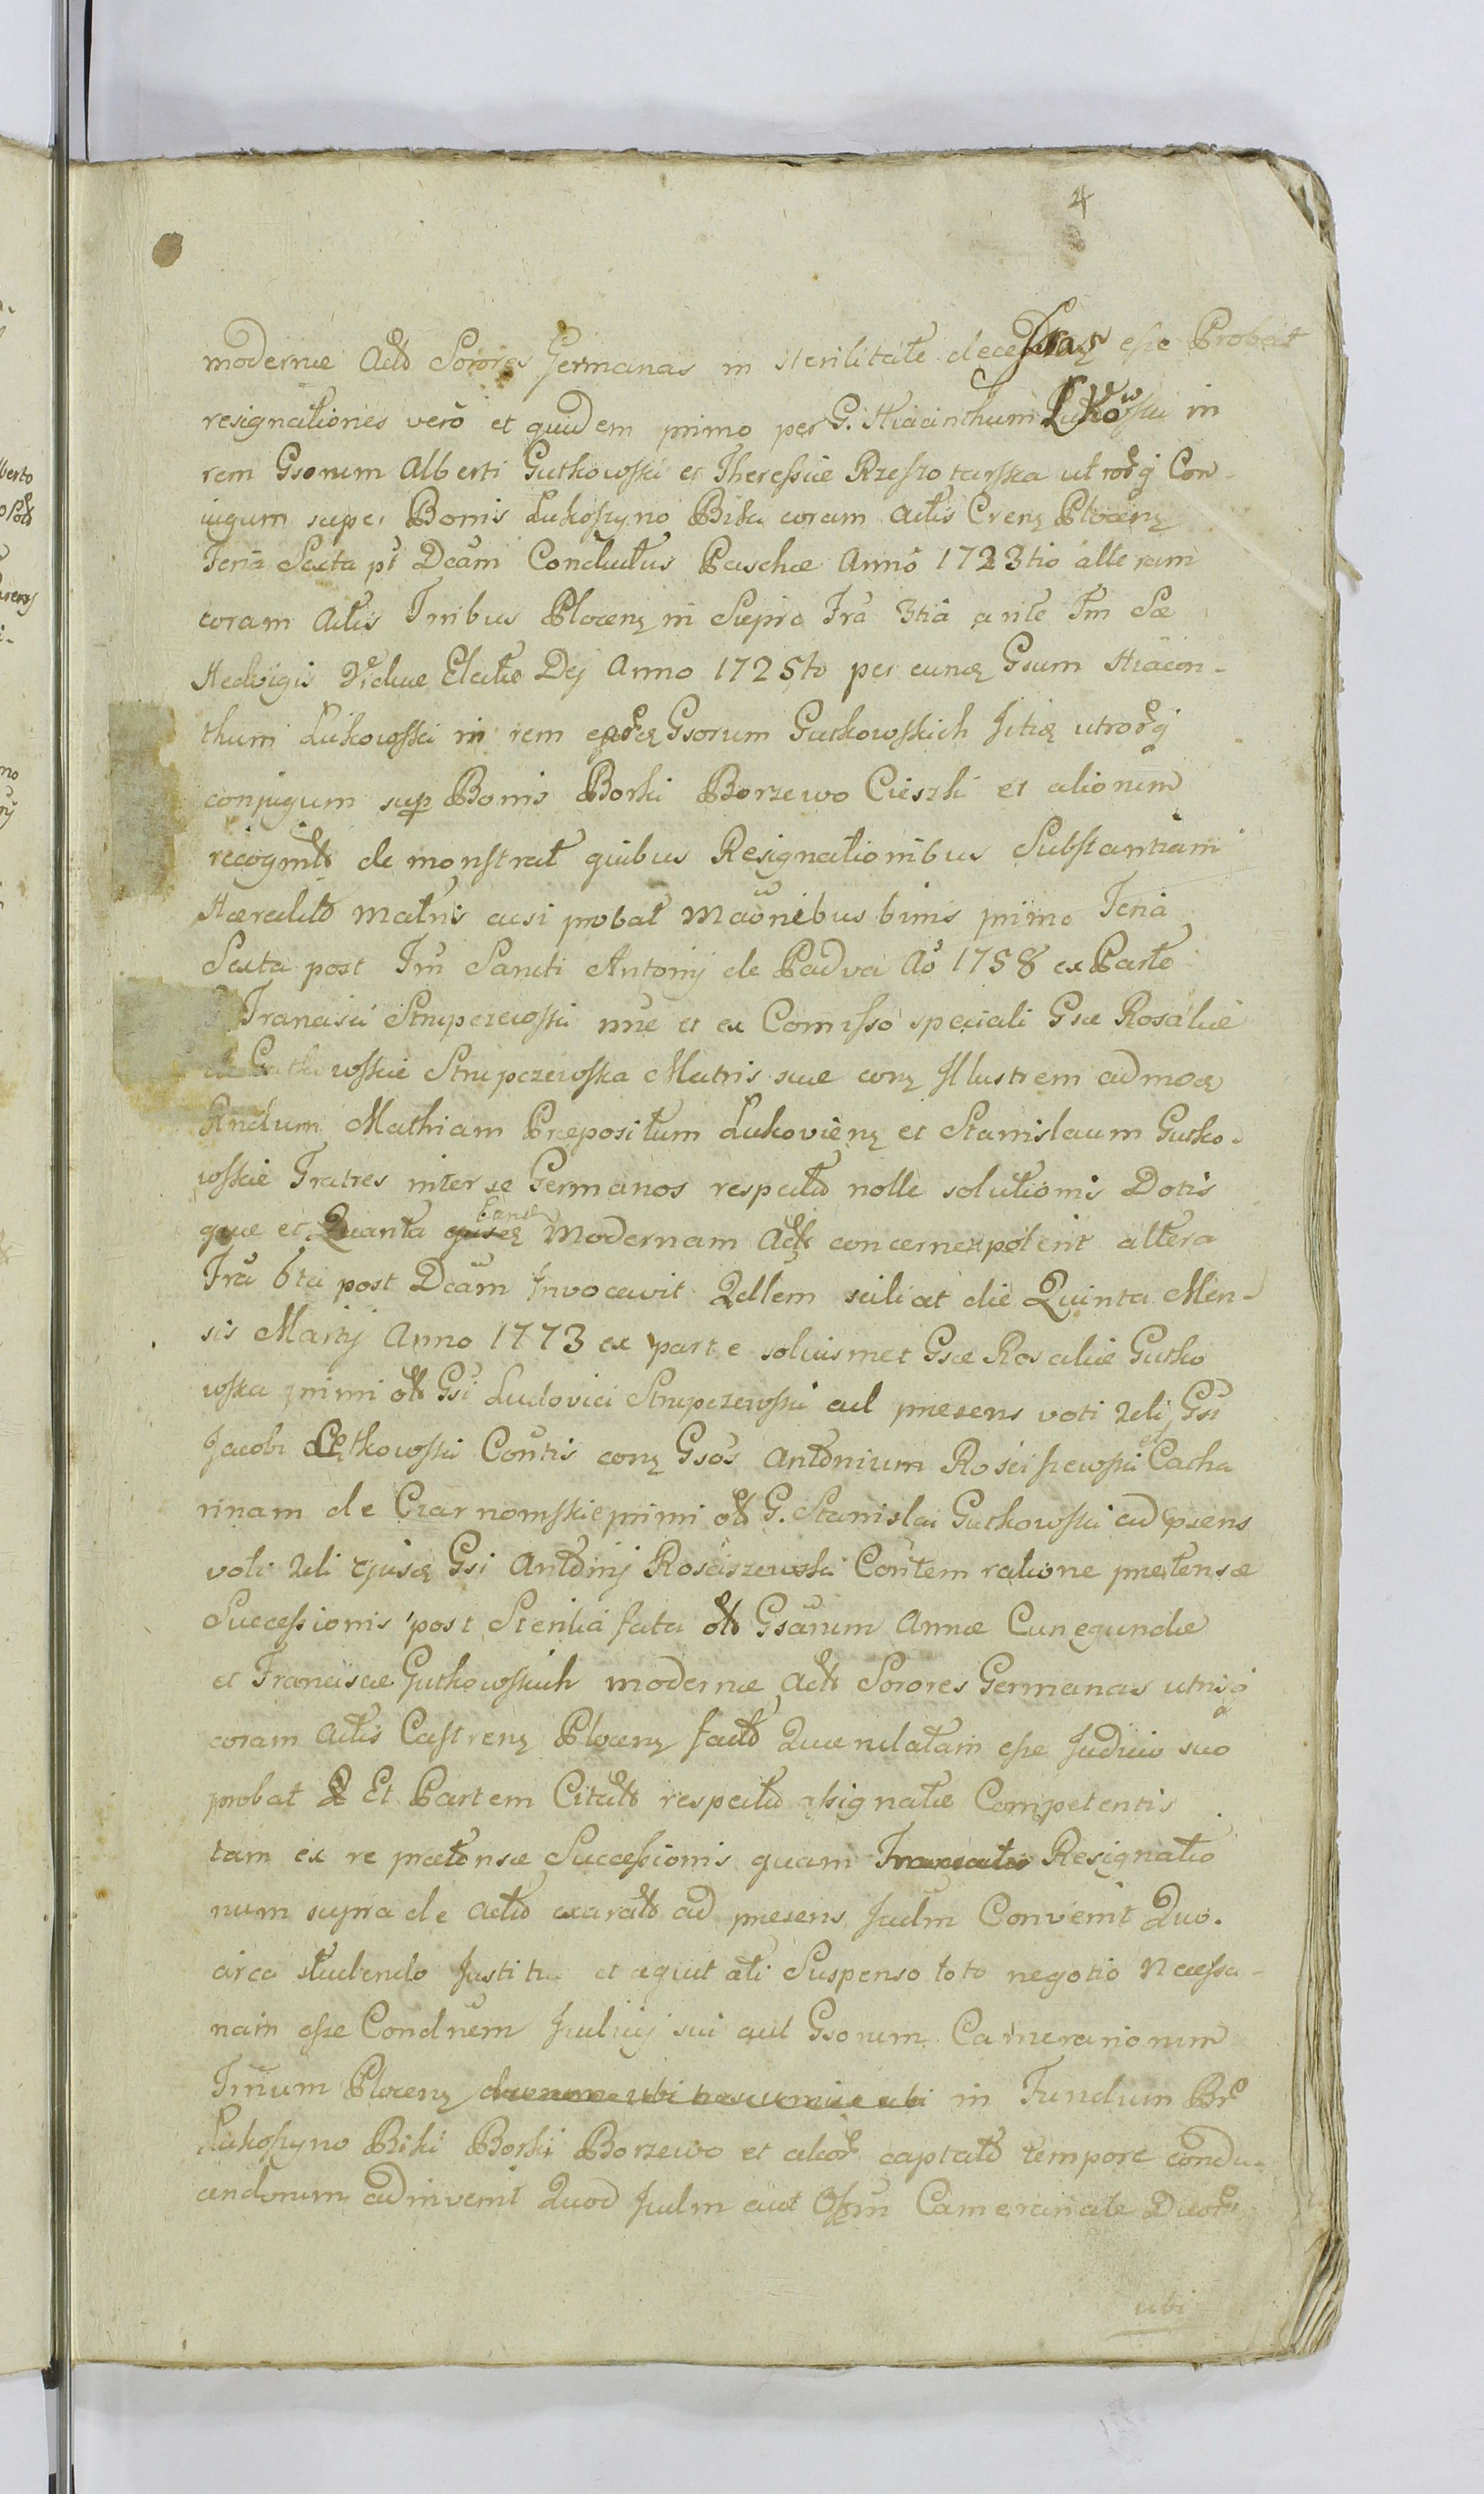 4
modernæ Actô Sorores Germanas in sterilitate decessas esse Probat
resignationes verò et quidem primo per G. Hiacinthum Lukowski in
rem Gsorum Alberti Gutkowski et Theressiæ Rzeszotarska utrorq Con-
iugum super Bonis Lukoszyno Biki coram Actis Crenz Plocenz
Feria Sexta pt Dcam Conductus Paschæ Anno 1723tio alteram
coram Actis Tribus Plocenz in Siepro Fra 3tia ante Fm Sæ
Hedvigis Viduæ Electæ Dej Anno 1725to per eunq Gsum Hiacin-
thum Lukowski in rem eorq Gsorum Gutkowskich Jtiq utrorq
conjugum sup Bonis Borki Borzewo Cieszki et aliorum
recognitô demonstrat quibus Resignationibus Substantiam
Hæreditô Matris acsi probat Maônibus binis primo Feria
Sexta post Fm Sancti Antonij de Padva Aô 1758 ex Parte
Francisci Strupczewski nne et ex Comisso speciali Gsæ Rosaliæ
de Gutkowskie Strupczewska Matris suæ conz Jllustrem admoq
Rndum Mathiam Præpositum Lukovienz et Stanislaum Gutko-
wskie Fratres inter se Germanos respectu nolle solutionis Dotis
quæ et Quanta Eand Modernam Actô concernere poterit altera
Fra 6ta post Dcam Jnvocavit Qdllem scilicet die Quinta Men-
sis Martij Anno 1773 ex parte solius met Gsæ Rosaliæ Gutko
wska primi olô Gsi Ludovici Strupczewski ad præsens voti 2di Gsi
Jacobi Lętkowski Contis conz Gsos Antonium Rosciszewski et Catha
rinam de Czarnomskie primi olô G. Stanislai Gutkowski ad psens
voti 2di ejusq Gsi Antonij Rosciszewski Contem ratione prætensæ
Successionis post Sterilia fata olô Gsarum Annæ Cunegundæ
et Franciscæ Gutkowskich modernæ Actô Sorores Germanas utrisq
coram Actis Castrenz Plocenz factô Quærulatam esse Judicio suo
probat Et Partem Citatô respectu assignatæ Competentis
tam ex re prætensæ Successionis quam Resignatio
num supra de Actô exaratô ad præsens Judm Convenit Quo-
circa studendo Justitiæ et æquitati Suspenso toto negotio Necessa-
riam esse Condnem Judicij sui aut Gsorum Camerariorum
Trium Plocenz in Fundum Br
Lukoszyno Biki Borki Borzewo et alior captatô tempore condu-
cendorum adinvenit Quod Judm aut Offm Camerariale Duor
ubi